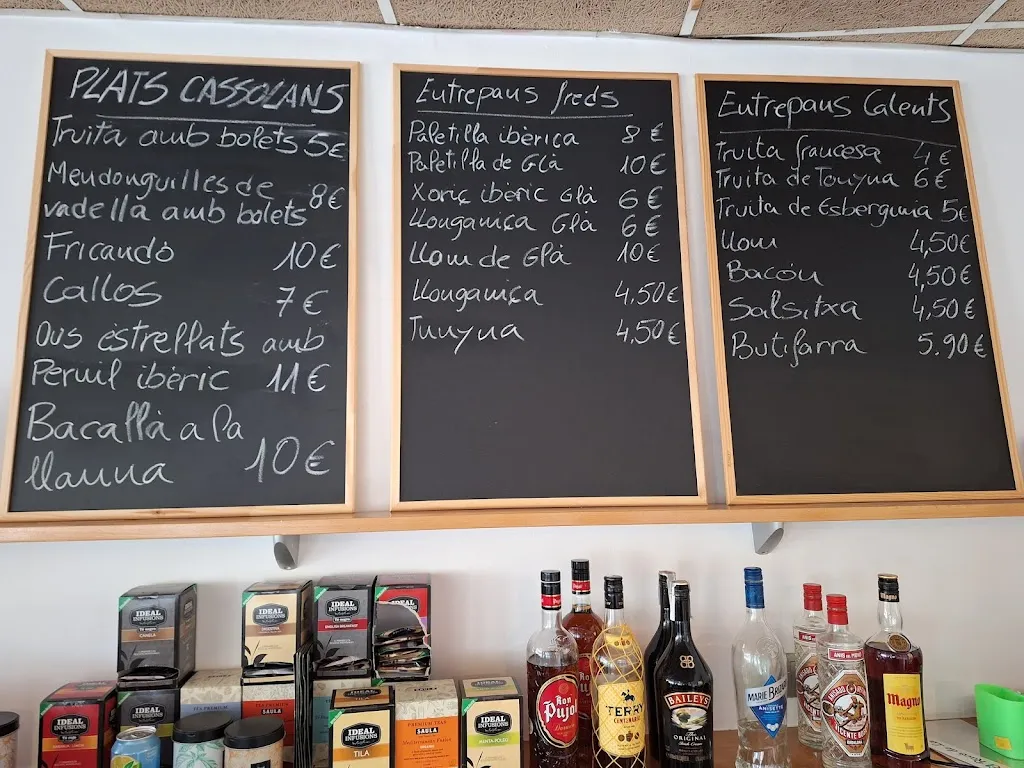 PLATS CASSOLANS
Truita amb bolets 5€
Mendonguilles de
vadella amb bolets 8€
Fricandó 10€
Callos 7€
Ous estrellats amb
Pernil ibèric 11€
Bacallà a la
llauna 10€
Entrepans freds
Paletilla ibèrica 8€
Paletilla de Glà 10€
Xoriç ibèric Glà 6€
Llonganiça Glà 6€
Llom de Glà 10€
Llonganiça 4,50€
Tunyna 4,50€
Entrepans Calents
Truita francesa 4€
Truita de Tonyna 6€
Truita de Esberginia 5€
Llom 4,50€
Bacón 4,50€
Salsitxa 4,50€
Butifarra 5.90€
IDEAL
INFUSIONS
CANELA
IDEAL
INFUSIONS
IDEAL
INFUSIONS
ENGLISH BREAKFAST
IDEAL
INFUSIONS
SAULA
IDEAL
INFUSIONS
TILA
PREMIUM TEAS
SAULA
IDEAL
INFUSIONS
MENTA POLEO
Ron
Pujol
TERRY
CENTENARIO
BAILEYS
THE
ORIGINAL
Irish Cream
MARIE BRIZARD
ANISETTE
ANIS del MONO
VICENTE BOSCH
BADALONA
Magno